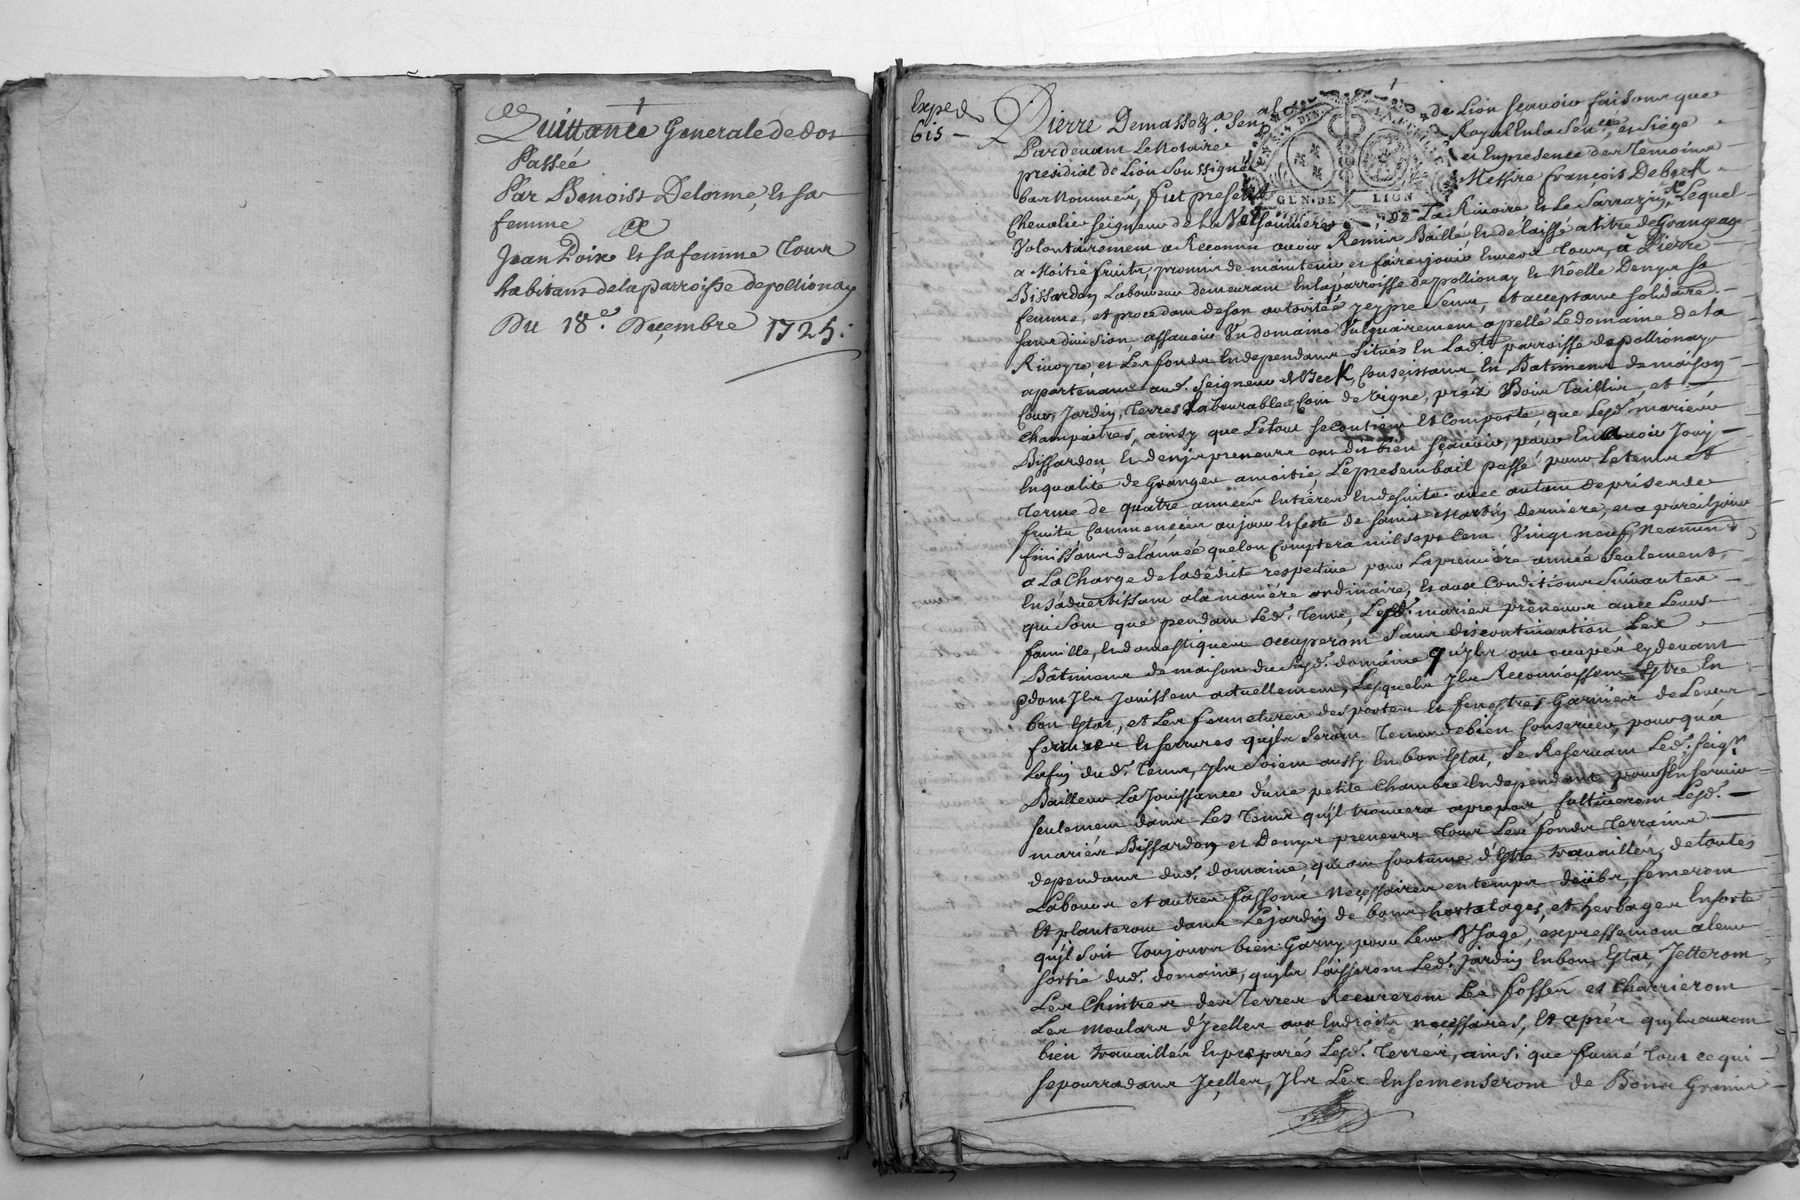 Quittance Generale de dot
Passée
Par Benoist Delorme, et sa
femme
Jean Poix et sa femme tous
habitans de la parroisse de pollionay
Du 18.e Decembre 1725.
Exped
bis
Pierre Demasso
de Lion scavoir faisons que
Pardevant Le Notaire
Royal En la Sen.ée et Siége
presidial de Lion Soussigné
et En presence des temoins
bas Nommés, fut present
Messire françois De beek
GEN. DE LION
Chevalier Seigneur de la
de La Rivoire et Le Sarrazin, Lequel
Volontairement a Reconnu avoir Remis Baillé et delaissé a titre de Grangeage
a Moitié fruits, promis de maintenir et faire jouir Envers tous, à Pierre
Bissardon Laboureur demeurant En la parroisse de pollionay et Noëlle Denys sa
femme, et procedant de son autorité, icy presens, et acceptans solidaire.
sans division, assavoir Un domaine Vulgairement apellé Le domaine de la
Rivoyre et Les fonds En dependans Situés En Lad.te parroisse de pollionay
apartenant aud. Seigneur de Beek, Consistans En Batimens de maison
Cour, Jardin, terres Labourables, Com de vigne, préz, Bois taillis, et
champêtres, ainsy que Le tout se Contient Et Comporte, que Lesd. mariés
Bissardon et denys preneurs ont dit bien scavoir, pour En avoir Jouy
En qualité de Granger a moitié, Le present bail passé pour Le temps et
terme de quatre années Entieres Ensuite avec autant de prises de
fruits Commencées au jour et feste de saint Martin derniere, et a pareil jour
finissans de L'année que lon Comptera mil sept Cent Vingt neuf, Neanmoins
a La Charge de la dédite respective pour La premiére année Seulement,
En S'advertissant a la maniére ordinaire, Et aux Conditions Suivantes
qui Sont que pendant Led. tems, Lesd. mariés preneurs avec Leurs
famille, Et domestiques occuperont Sans discontinuation Les
Bâtimens de maison du Susd. domaine qu'ils ont occupés cy devant
dont Ils Jouissent actuellement, Lesquels Ils Reconnoissent Estre En
bon Estat, et Les fermetures des portes et fenestres Garnies de Leurs
ferrures et serrures qu'ils Seront Tenus de bien Conserver, pour qu'à
La fin dud. tems, Ils Soient aussy En bon Estat, Se Reservant Led. Seig.r
Bailleur La Jouissance d'une petite Chambre En dependant pour S'En servir
seulement dans Les tems qu'il trouvera a propos Cultiveront Lesd.
mariés Bissardon et Denys preneurs tous Les fonds terrains
dependans dud. domaine, qui ont Coutume d'Estre travaillés, de toutes
Labours et autres fassons Necessaires en temps deübs, semeront
Et planteront dans Le jardin de bons hortolages, et herbages Ensorte
qu'il Soit Toujours bien Garny pour Leur Usage, expressement a leur
sortie dud. domaine, qu'ils Laisseront Led. jardin En bon Estat, Jetteront
Les Chintres des Terres Recureront Les fossés et Charrieront
Les moulars d'Icelles aux Endroits necessaires, Et aprés qu'ils auront
bien travaillés Et preparés Lesd. Terres, ainsi que fumé tout ce qui
se pourra dans Icelles, Ils Les Ensemenseront de Bons Grains